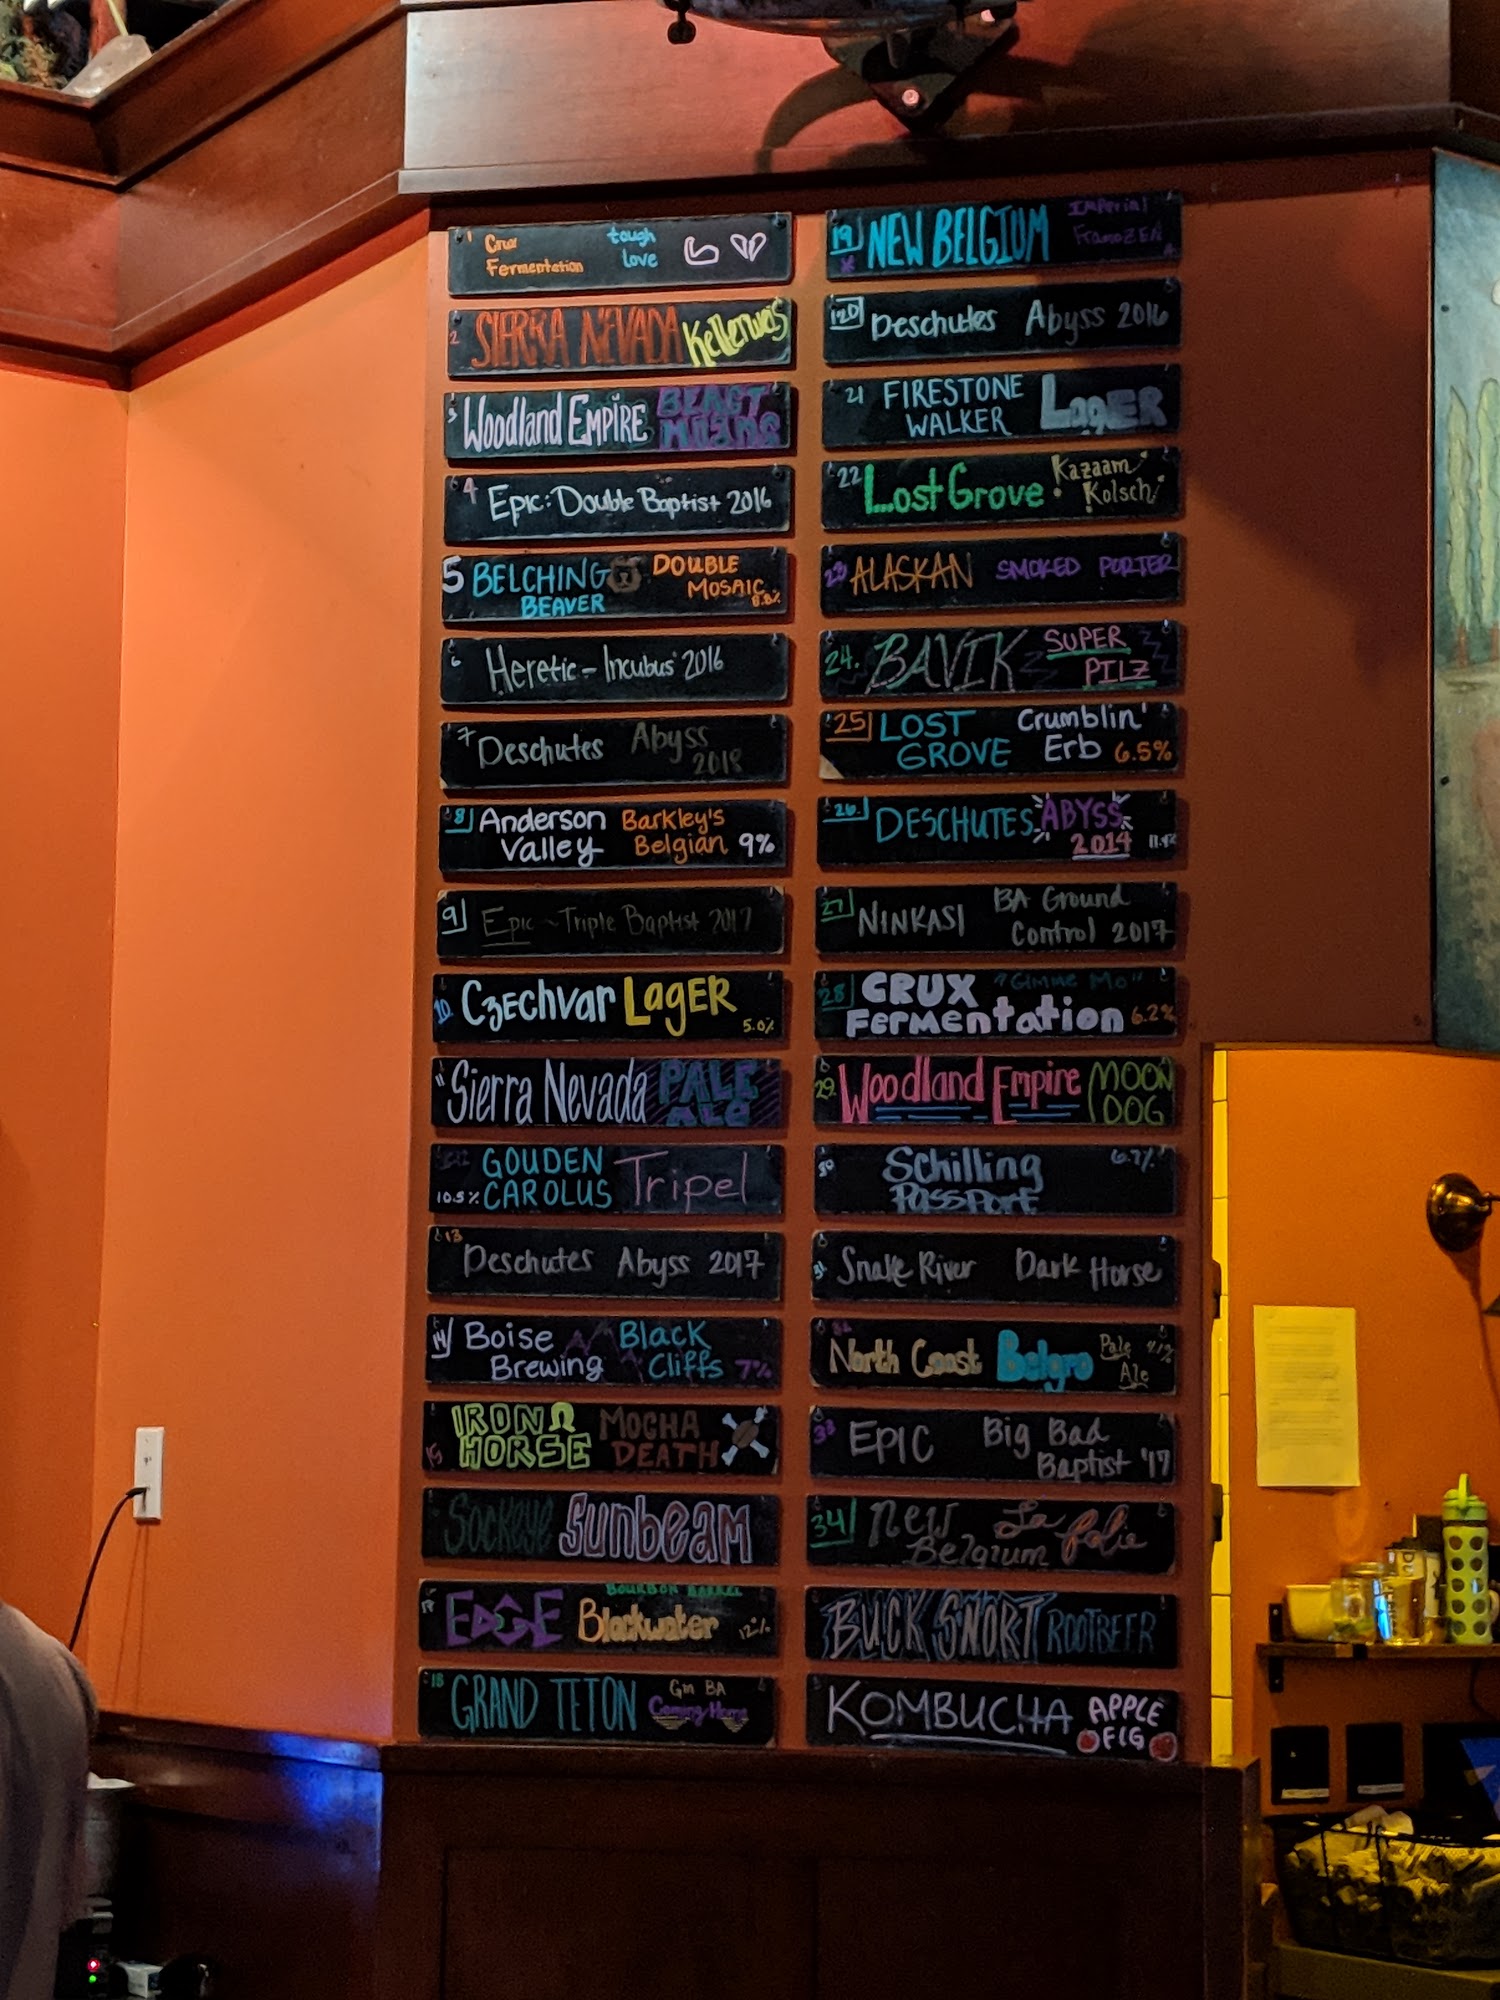 1 Crux Fermentation tough love
2 SIERRA NEVADA Kellerweis
3 Woodland Empire BEAST
4 Epic: Double Baptist 2016
5 BELCHING BEAVER DOUBLE MOSAIC 8.8%
6 Heretic - Incubus 2016
7 Deschutes Abyss 2018
8 Anderson Valley Barkley's Belgian 9%
9 Epic ~ Triple Baptist 2017
10 Czechvar LAGER 5.0%
11 Sierra Nevada PALE ALE
12 GOUDEN CAROLUS Tripel 10.5%
13 Deschutes Abyss 2017
14 Boise Brewing Black Cliffs 7%
15 IRON HORSE MOCHA DEATH
Sockeye Sunbeam
17 EDGE BOURBON BARREL Blackwater 12%
18 GRAND TETON BA Coming Home
19 NEW BELGIUM IMPERIAL
20 Deschutes Abyss 2016
21 FIRESTONE WALKER LAGER
22 Lost Grove Kazaam Kolsch
23 ALASKAN SMOKED PORTER
24. BAVIK SUPER PILZ
25 LOST GROVE Crumblin' Erb 6.5%
26. DESCHUTES ABYSS 2014
27 NINKASI BA Ground Control 2017
28 CRUX Fermentation "Gimme Mo" 6.2%
29. Woodland Empire MOON DOG
30 Schilling PASSPORT 6.7%
31 Snake River Dark Horse
32 North Coast Belgro Pale Ale 4.1%
33 EPIC Big Bad Baptist '17
34 New Belgium La folie
BUCK SNORT ROOTBEER
KOMBUCHA APPLE FIG